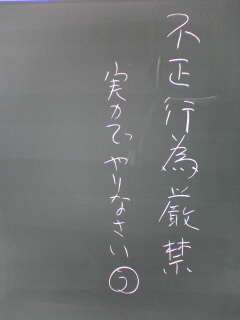 不正行為厳禁
実力でやりなさい